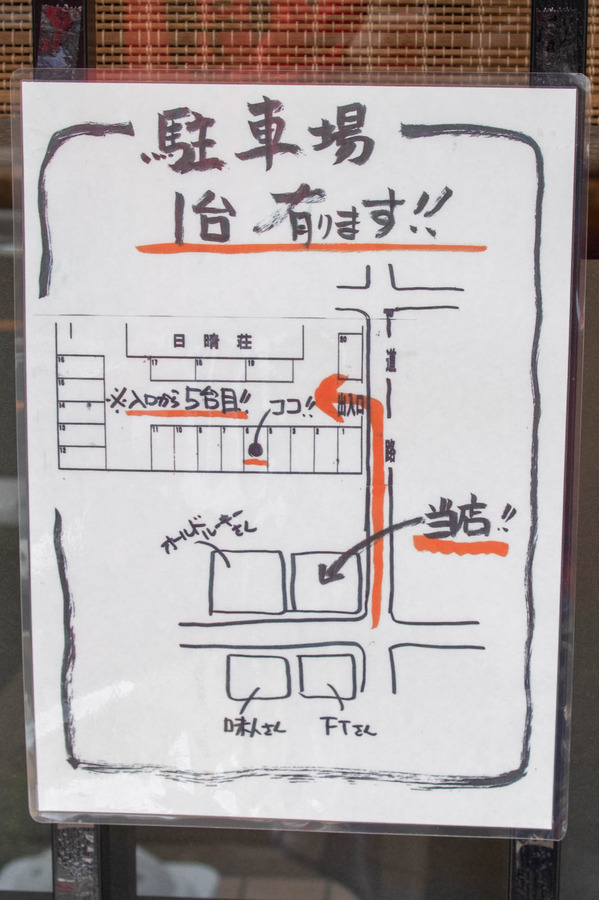 駐車場
1台 有ります!!
日晴荘
20
16
17 18 19
15
14
13
12
※入口から5台目!!
ココ!!
出入口
道路
11 10 9 8 6 5 3 2 1
当店!!
オールドルーキーさん
味人さん
FTさん